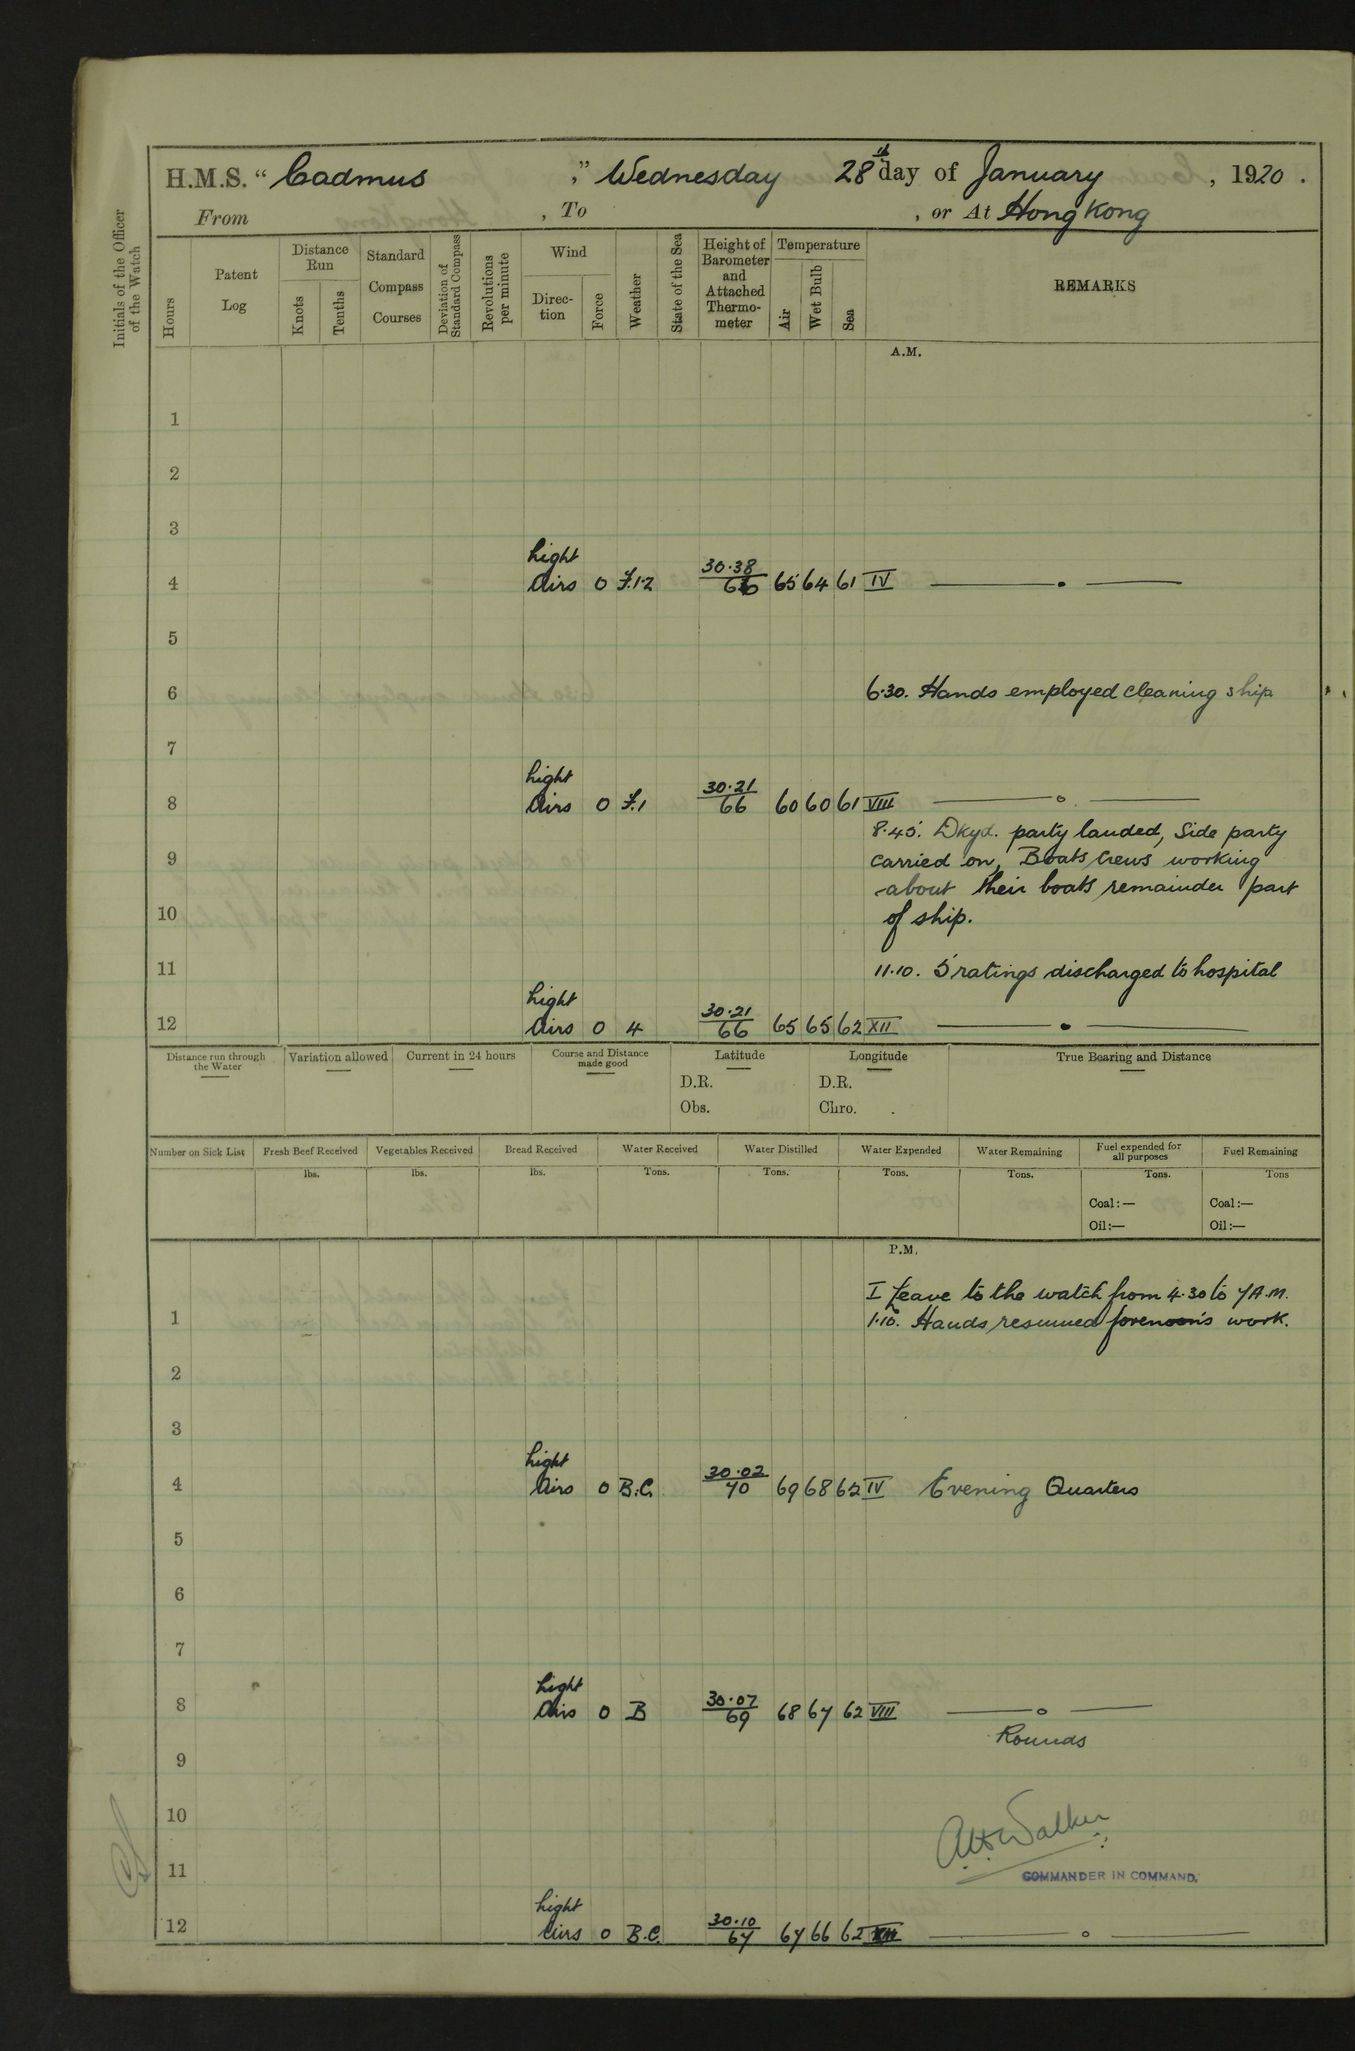 H.M.S. “Cadmus ,” Wednesday 28th day of January, 1920.
From , To , or At Hong Kong
Initials of the Officer of the Watch
Hours
Patent Log
Distance Run
Knots
Tenths
Standard Compass Courses
Deviation of Standard Compass
Revolutions per minute
Wind
Direc-tion
Force
Weather
State of the Sea
Height of Barometer and Attached Thermo-meter
Temperature
Air
Wet Bulb
Sea
REMARKS
A.M.
1
2
3
Light
4 Airs 0 F.12 30.38/66 65 64 61 IV
5
6 6.30. Hands employed cleaning ship
7
Light
8 Airs 0 F.1 30.21/66 60 60 61 VIII
8.45. Dkyd. party landed, Side party
9 carried on, Boats crews working
about their boats remainder part
10 of ship.
11 11.10. 5 ratings discharged to hospital
Light
12 Airs 0 4 30.21/66 65 65 62 XII
Distance run through the Water
Variation allowed
Current in 24 hours
Course and Distance made good
Latitude
D.R.
Obs.
Longitude
D.R.
Chro.
True Bearing and Distance
Number on Sick List
Fresh Beef Received
lbs.
Vegetables Received
lbs.
Bread Received
lbs.
Water Received
Tons.
Water Distilled
Tons.
Water Expended
Tons.
Water Remaining
Tons.
Fuel expended for all purposes
Tons.
Coal:—
Oil:—
Fuel Remaining
Tons
Coal:—
Oil:—
P.M.
I Leave to the watch from 4.30 to 7 A.M.
1 1.10. Hands resumed forenoon's work.
2
3
Light
4 Airs 0 B.C. 30.02/70 69 68 62 IV Evening Quarters
5
6
7
Light
8 Airs 0 B 30.07/69 68 67 62 VIII
Rounds
9
10
Walker
11 COMMANDER IN COMMAND.
Light
12 Airs 0 B.C. 30.10/67 67 66 62